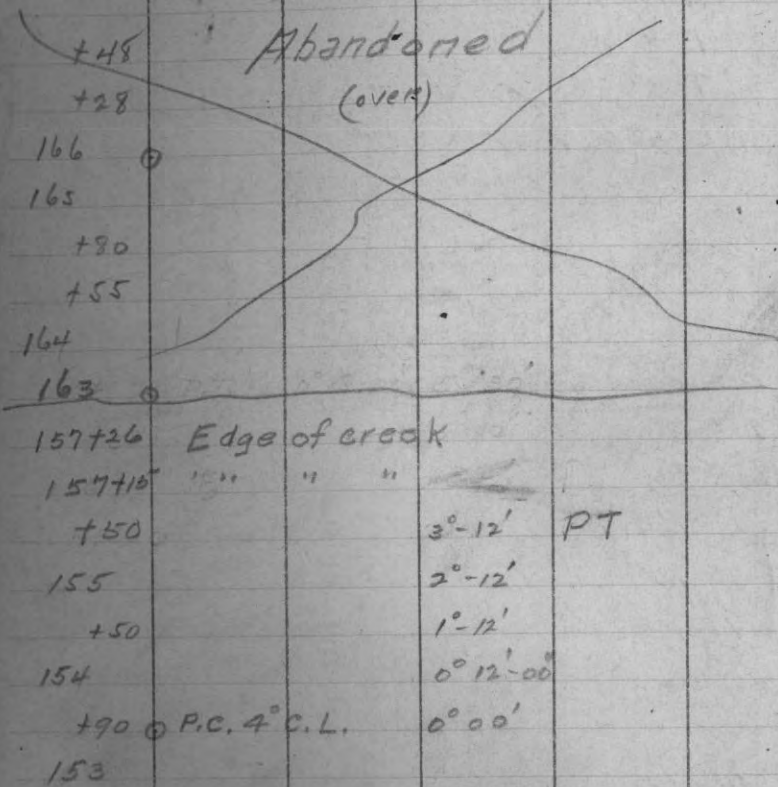 +48 Abandoned
+28 (over)
166
165
+80
+55
164
163
157+26 Edge of creek
157+15 " " "
+50 3°-12' PT
155 2°-12'
+50 1°-12'
154 0° 12'-00"
+90 P.C. 4° C.L. 0° 00'
153